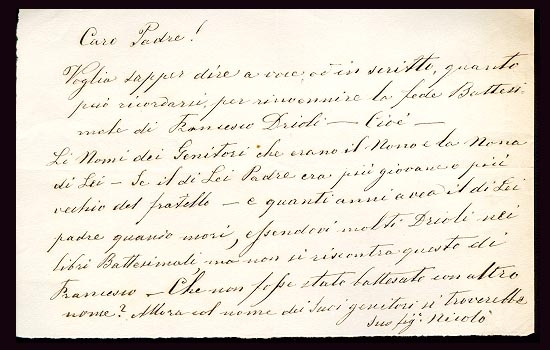 Caro Padre!
Voglia sapper dire a voce, od in scritto, quanto
può ricordarsi, per rinvennire la fede Battesi-
male di Francesco Drioli — Cioè —
Li Nomi dei Genitori che erano il Nono e la Nona
di Lei — Se il di Lei Padre era più giovane o più
vecchio del fratello — e quanti anni avea il di Lei
padre quando morì, essendovi molti Drioli nei
libri Battesimali ma non si riscontra questo di
Francesco — Che non fosse stato battesato con altro
nome? Allora col nome dei suoi genitori si troverebbe
Suo fig. Nicolò